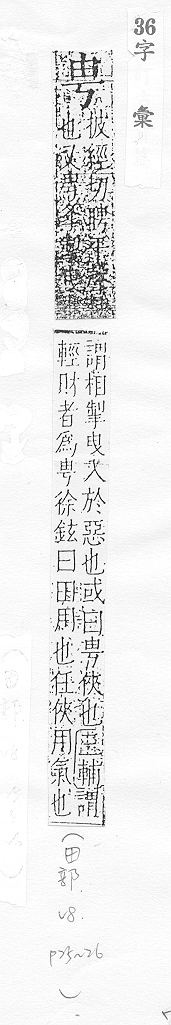 36
字彙
甹
披經切聘平聲
也
謂相掣曳入於惡也或曰甹俠也惡輔謂
輕財者為甹徐鉉曰由用也任俠用氣也
（田部
p25~26
）